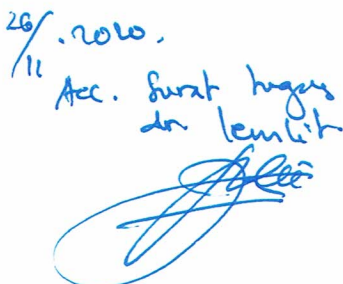 26/11.2020.
Acc. Surat tugas
dr lemlit